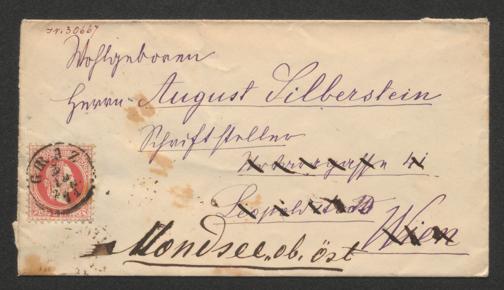 I.N.30667
Wohlgeboren
Herrn August Silberstein
Schriftsteller
Leopoldstadt
Wien
Mondsee, ob. öst
GRAZ